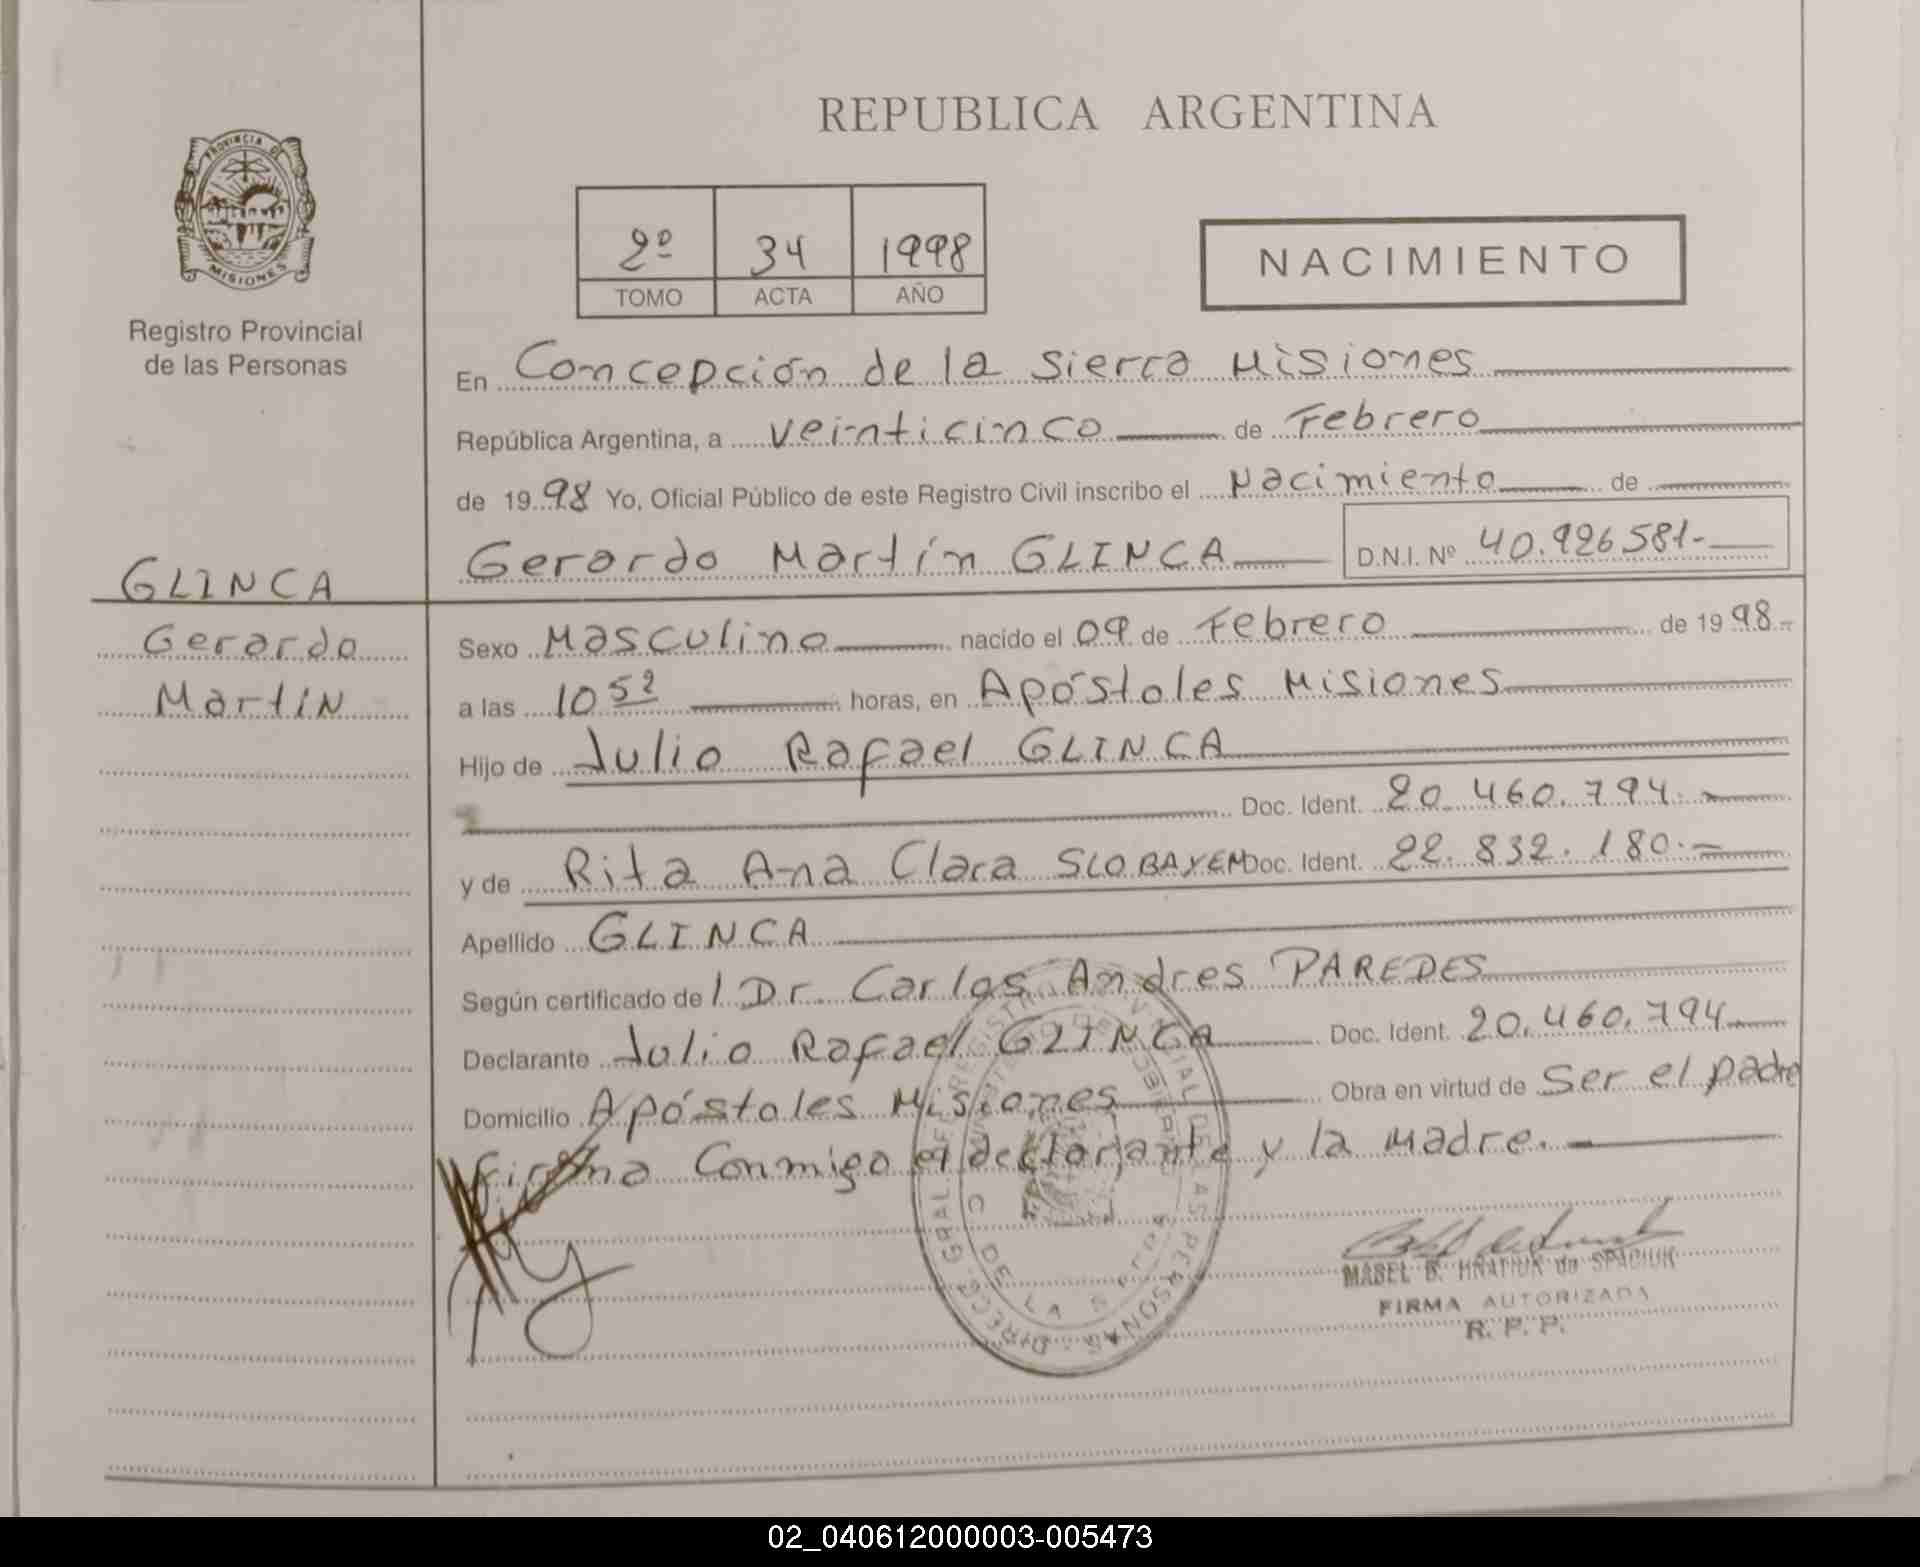 REPUBLICA ARGENTINA
PROVINCIA DE MISIONES
Registro Provincial
de las Personas
2º 34 1998
TOMO ACTA AÑO
NACIMIENTO
En Concepción de la Sierra Misiones
República Argentina, a veinticinco de Febrero
de 1998 Yo, Oficial Público de este Registro Civil inscribo el Nacimiento de
Gerardo Martín GLINCA D.N.I. Nº 40.926581.-
GLINCA
Gerardo
Martín
Sexo Masculino nacido el 09 de Febrero de 1998.-
a las 10 52 horas, en Apóstoles Misiones
Hijo de Julio Rafael GLINCA
Doc. Ident. 20.460.794.-
y de Rita Ana Clara SLOBAYEN Doc. Ident. 22.832.180.-
Apellido GLINCA
Según certificado del Dr. Carlos Andres PAREDES
Declarante Julio Rafael GLINCA Doc. Ident. 20.460.794
Domicilio Apóstoles Misiones Obra en virtud de Ser el padre
firma Conmigo el declarante y la madre.-
MABEL B. HNATIUK de SPACIUK
FIRMA AUTORIZADA
R. P. P.
02_040612000003-005473